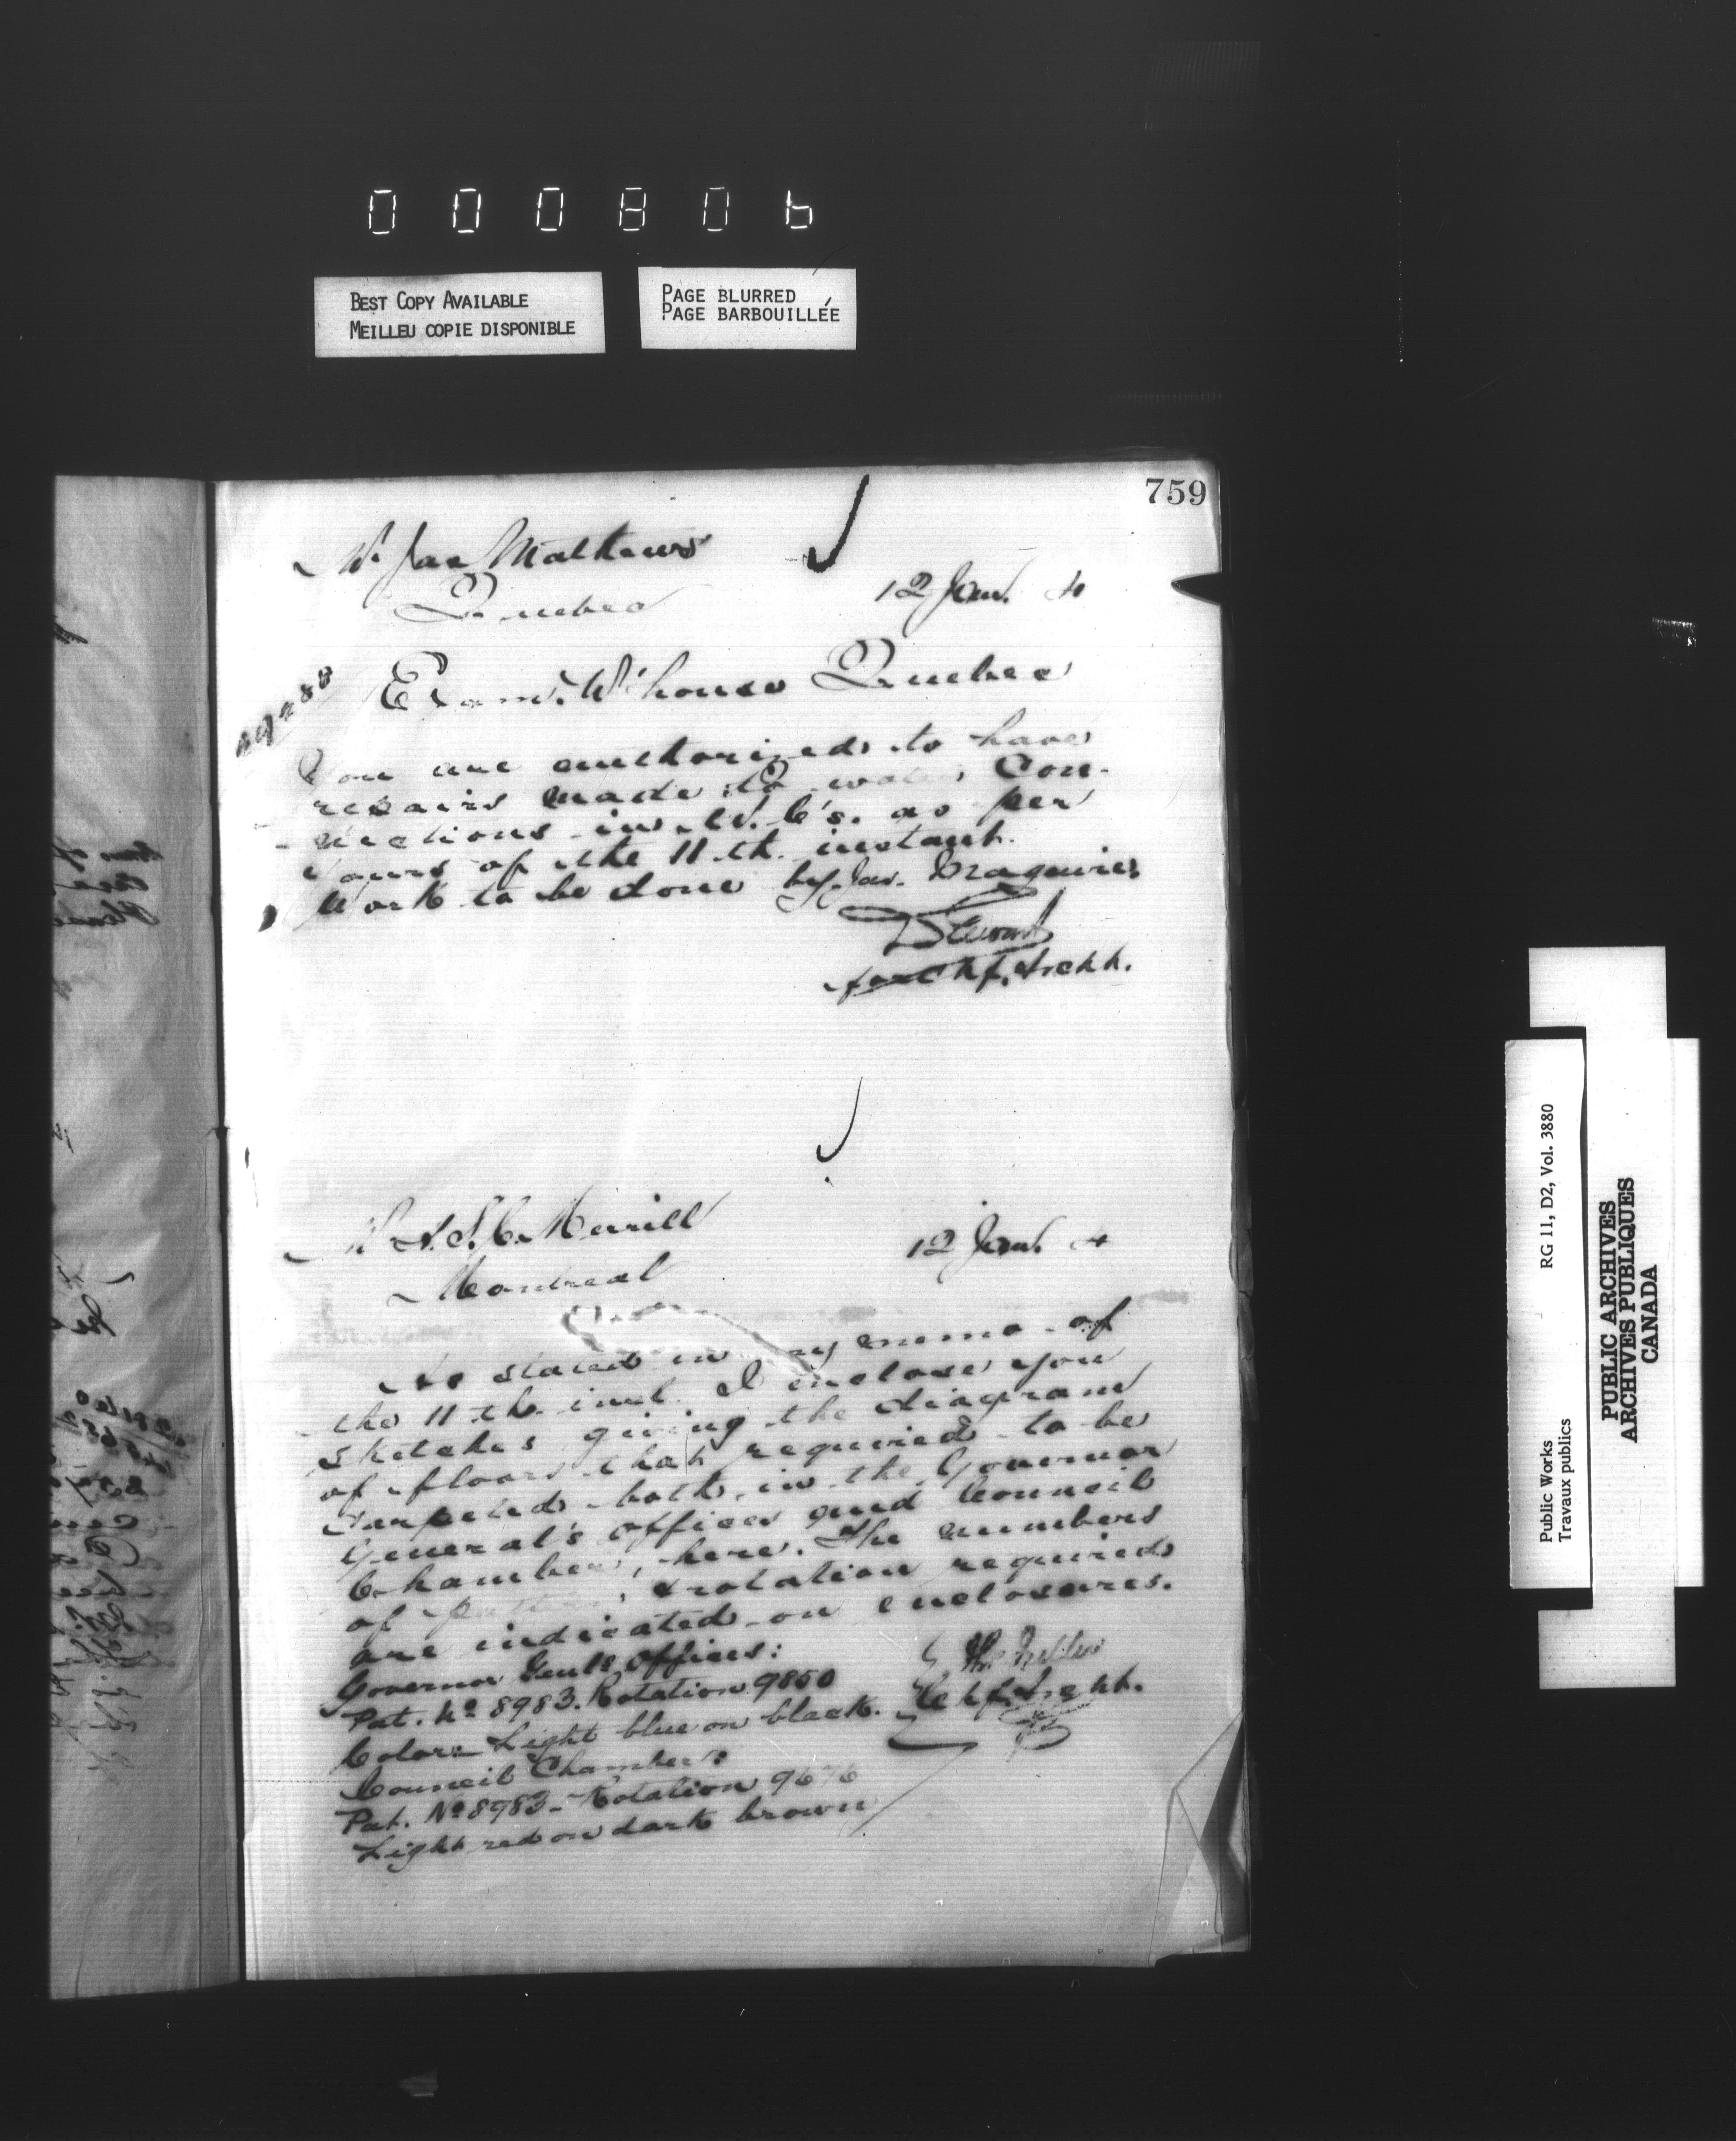 000806
BEST COPY AVAILABLE
MEILLEU COPIE DISPONIBLE
PAGE BLURRED
PAGE BARBOUILLÉE
759
Mr Jas Mathews
Quebec
12 Jan. 4
Exam. W'house Quebec
You are authorized to have
repairs made to water con-
nections in W.C's. as per
yours of the 11th instant.
Work to be done by Jas. Maguire
for Chf. Archt.
Mr A.S.C. Murill
Montreal
12 Jan. 4
As stated in my memo of
the 11th inst. I enclose you
sketches giving the diagram
of floors that required to be
carpeted both in the Governor
General's Offices and Council
Chamber, here. The numbers
of pattern, & rotation required
are indicated on enclosures.
Governor Genl's Offices:
Pat. No 8983. Rotation 9850
Color:- Light blue on black.
Chf. Archt.
Council Chamber:
Pat. No 8983 - Rotation 9676
Light red on dark brown
Public Works
Travaux publics
RG 11, D2, Vol. 3880
PUBLIC ARCHIVES
ARCHIVES PUBLIQUES
CANADA